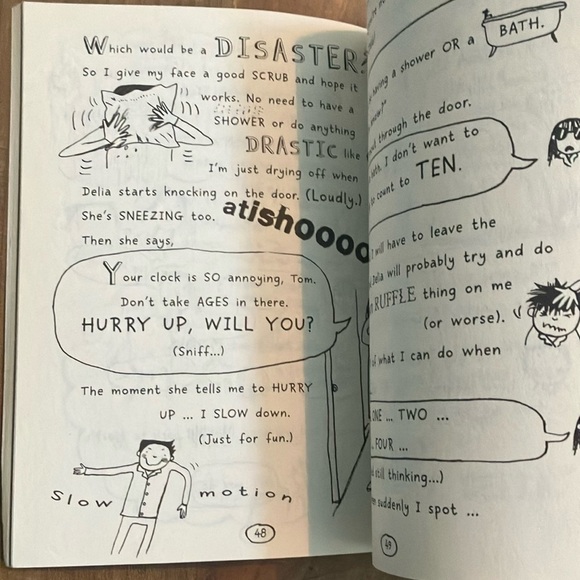 Which would be a DISASTER
So I give my face a good SCRUB and hope it
works. No need to have a
SHOWER or do anything
DRASTIC like
I'm just drying off when
Delia starts knocking on the door. (Loudly.)
She's SNEEZING too. atishoooo
Then she says,
Your clock is SO annoying, Tom.
Don't take AGES in there.
HURRY UP, WILL YOU?
(Sniff...)
The moment she tells me to HURRY
UP ... I SLOW down.
(Just for fun.)
Slow motion
48
BATH.
having a shower OR a
through the door.
I don't want to
count to TEN.
will have to leave the
Delia will probably try and do
RUFFLE thing on me
(or worse).
of what I can do when
ONE ... TWO ...
FOUR ...
still thinking...)
suddenly I spot ...
49